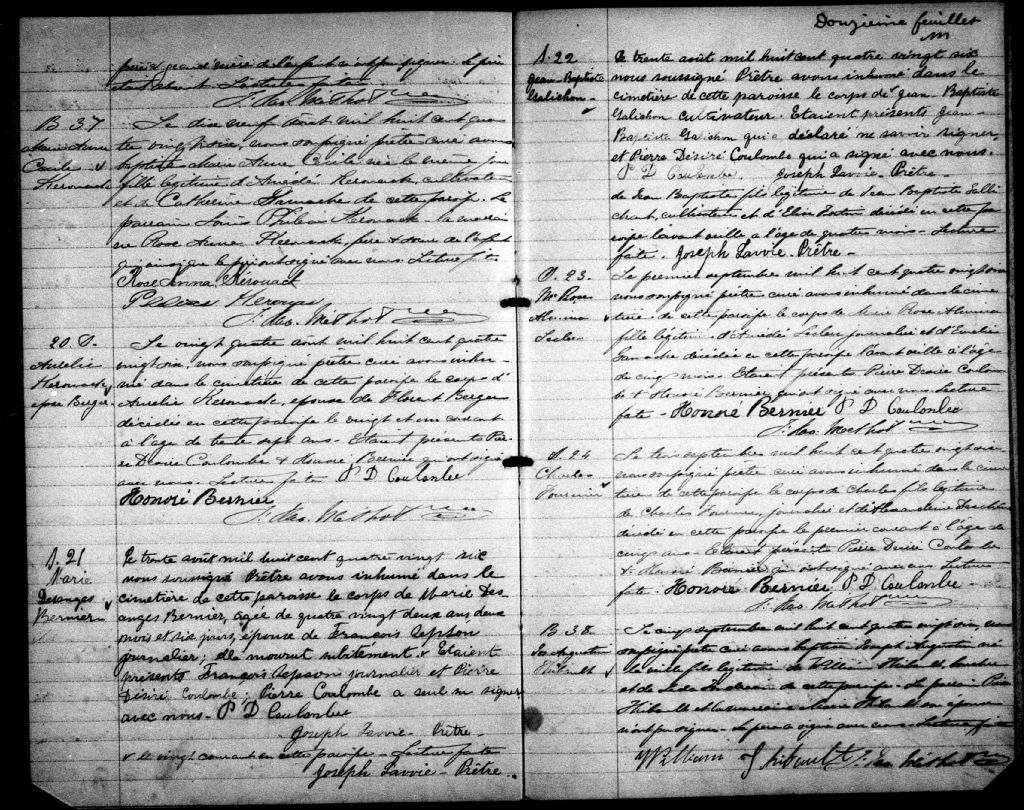 Lecture faite
J. Geo. Methot Ptre
B 37
Marie Anne
Cécile
Kerouack
Le dix neuf août mil huit cent qua-
tre vingt six, nous soussigné prêtre curé avons
baptisé Marie Anne Cécile née le même jour
fille légitime d'Amédé Kerouack, cultivateur
et de Catherine Gamache de cette paroisse. Le
parrain Louis Kerouack la marrai
ne Rose Anna Kerouack, frère & soeur de l'enfant
qui ainsi que le père ont signé avec nous. Lecture faite
Rose Anna Kérouack
J. Geo. Methot Ptre
20 S.
Aurélie
Kerouack
épse Berger
Le vingt quatre août mil huit cent quatre
vingt six, nous soussigné prêtre curé avons inhu-
mé dans le cimetière de cette paroisse le corps d'
Aurélie Kerouack, épouse de Florent Berger
décédée en cette paroisse le vingt et un courant
à l'âge de trente sept ans. Etaient présents Pier-
re Désiré Coulombe & Honoré Bernier qui ont signé
avec nous. Lecture faite P D Coulombe
Honoré Bernier
J. Geo. Methot Ptre
S. 21
Marie
Desanges
Bernier
Le trente août mil huit cent quatre vingt six
nous soussigné Prêtre avons inhumé dans le
cimetière de cette paroisse le corps de Marie Des
anges Bernier, agée de quatre vingt deux ans, deux
mois et six jours, épouse de François Jepson
journalier; elle mourut subitement. x Etaient
présents François Jepson journalier et Pierre
Désiré Coulombe; Pierre Coulombe a seul su signer
avec nous - P D Coulombe
Joseph Lavoie - Prêtre -
x le vingt courant en cette paroisse - Lecture faite
Joseph Lavoie - Prêtre -
Douzième feuillet
S. 22
Jean-Baptiste
Galichon
Le trente août mil huit cent quatre vingt six
nous soussigné Prêtre avons inhumé dans le
cimetière de cette paroisse le corps de Jean Baptiste
Galichon cultivateur. Etaient présents Jean-
Baptiste Galichon qui a déclaré ne savoir signer
et Pierre Désiré Coulombe qui a signé avec nous.
P D Coulombe. Joseph Lavoie - Prêtre -
de Jean Baptiste fils légitime de Jean Baptiste Galli
chant, cultivateur et d'Elise décédé en cette pa
roisse l'avant veille à l'âge de quatre mois - Lecture
faite - Joseph Lavoie - Prêtre -
S. 23
Me Rose
Alvina
Leclerc
Le premier septembre mil huit cent quatre vingt six
nous soussigné prêtre curé avons inhumé dans le cime
tière de cette paroisse le corps de Marie Rose Alvina
fille légitime d'Amédé Leclerc journalier et d'Emélie
Gamache décédée en cette paroisse l'avant veille à l'âge
de cinq mois - Etaient présents Pierre Désiré Coulom
be & Honoré Bernier qui ont signé avec nous. Lecture
faite - Honoré Bernier P D Coulombe
J. Geo. Methot Ptre
S. 24
Charles
Fournier
Le trois septembre mil huit cent quatre vingt six
nous soussigné prêtre curé avons inhumé dans le cime
tière de cette paroisse le corps de Charles fils légitime
de Charles Fournier, journalier et de
décédé en cette paroisse le premier courant à l'âge de
cinq ans - Etaient présents Pierre Désiré Coulombe
& Honoré Bernier qui ont signé avec nous Lecture
faite - Honoré Bernier P D Coulombe
J. Geo. Methot Ptre
B 38
Jos. Augustin
Thibault
Le cinq septembre mil huit cent quatre vingt six, nous
soussigné prêtre curé avons baptisé Joseph Augustin né
la veille fils légitime de William Thibault, boucher
et de de cette paroisse. Le parrain
Thibault Marie Thibault son épouse
n'ont pu signer. Le père a signé avec nous - Lecture faite
William Thibault J. Geo Methot Ptre